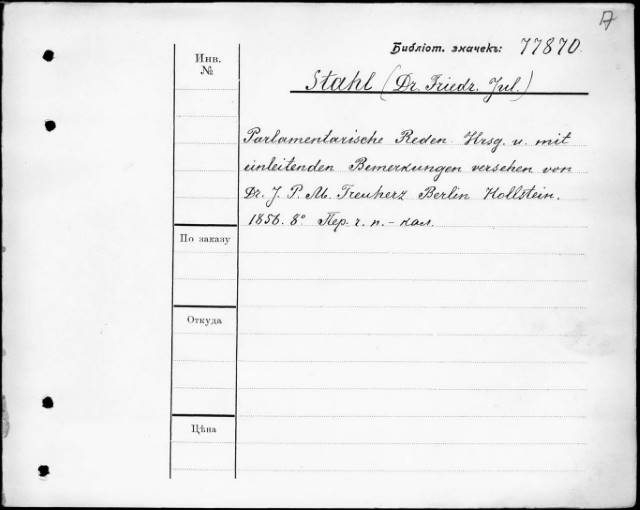 А
Библіот. значекъ: 77870.
Инв.
№
Stahl (Dr. Friedr. Jul.)
Parlamentarische Reden. Hrsg. u. mit
einleitenden Bemerkungen versehen von
Dr. J. P. M. Treuherz Berlin Hollstein.
1856. 8° Пер. ч. п. – кал.
По заказу
Откуда
Цѣна